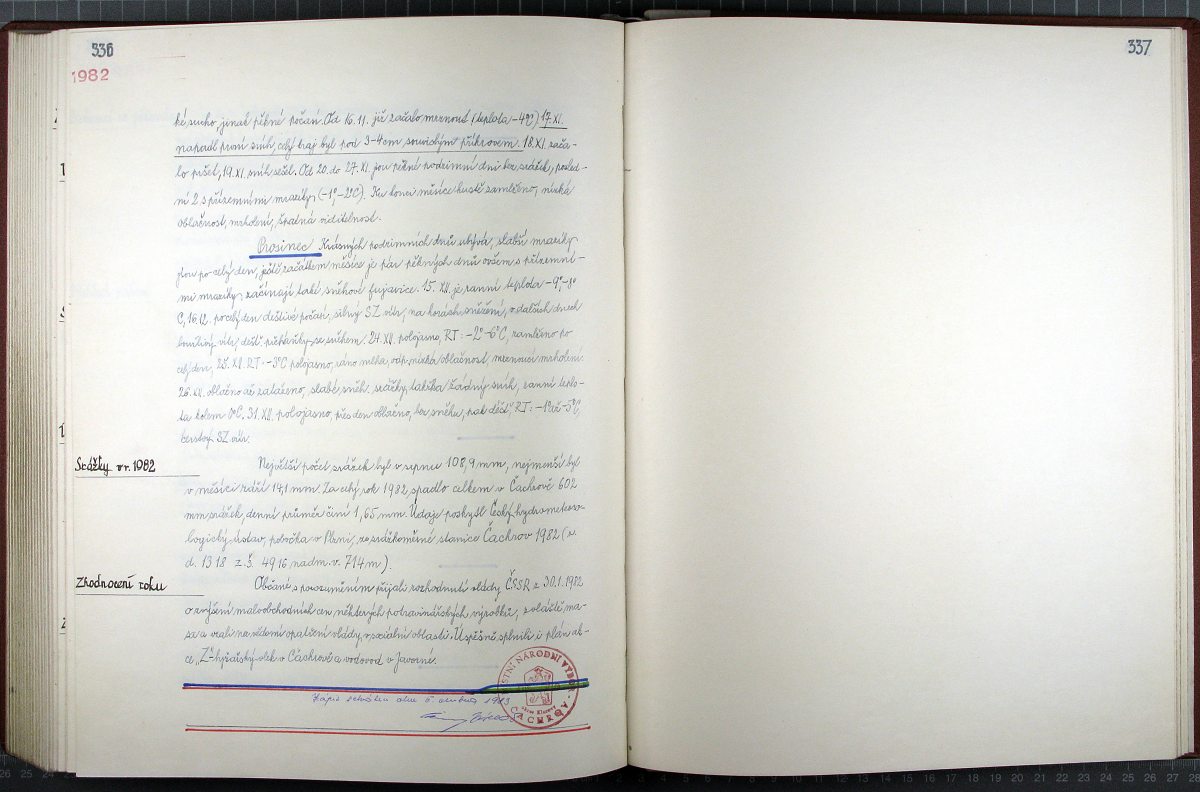 336
1982
ké sucho, jinak pěkné počasí. Od 16.11. již začalo mrznout (teplota -4°C). 17.XI.
napadl první sníh, celý kraj byl pod 3-4cm souvislým příkrovem. 18.XI. zača-
lo pršet, 19.XI. sníh sešel. Od 20. do 27.XI. jsou pěkné podzimní dni bez srážek, posled-
ní 2 s přízemními mrazíky (-1°, -2°C). Ku konci měsíce husté zamlženo, nízká
oblačnost, mrholení, špatná viditelnost.
Prosinec Krásných podzimních dnů ubývá, slabší mrazíky
jsou po celý den, ještě začátkem měsíce je pár pěkných dnů ovšem s přízemní-
mi mrazíky, začínají také sněhové fujavice. 15.XII. je ranní teplota -9°, -8°
C, 16.12. po celý den deštivé počasí, silný SZ vítr, na horách sněžení, v dalších dnech
bouřlivý vítr, déšť, přeháňky se sněhem. 24.XII. polojasno, RT: -2° -6°C, zamlženo po
celý den, 25.XII. RT: -3°C polojasno, ráno mlha, odp. nízká oblačnost mrznoucí mrholení.
26.XII. oblačno až zataženo, slabé sněh. srážky, takřka žádný sníh, ranní teplo-
ta kolem 0°C. 31.XII. polojasno, přes den oblačno, bez sněhu, pak déšť RT: -1° až -5°C,
čerstvý SZ vítr.
Srážky v r. 1982
Největší počet srážek byl v srpnu 108,9 mm, nejmenší byl
v měsíci září 14,1 mm. Za celý rok 1982 spadlo celkem v Čachrově 602
mm srážek, denní průměr činí 1,65 mm. Údaje poskytl Český hydrometeoro-
logický ústav, pobočka v Plzni, ze srážkoměrné stanice Čachrov 1982 (v.
d. 1318 z.š. 4916 nadm.v. 714 m).
Zhodnocení roku
Občané s porozuměním přijali rozhodnutí vlády ČSSR z 30.1.1982
o zvýšení maloobchodních cen některých potravinářských výrobků, zvláště ma-
sa a vzali na vědomí opatření vlády v sociální oblasti. Úspěšně splnili i plán ak-
ce „Z“-lyžařský vlek v Čachrově a vodovod v Javorné.
Zápis schválen dne 1983
MÍSTNÍ NÁRODNÍ VÝBOR
okres Klatovy
ČACHROV
337